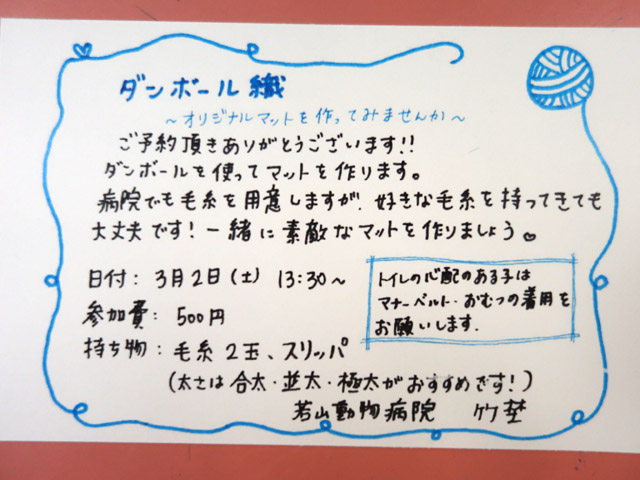 ダンボール織
～オリジナルマットを作ってみませんか～
ご予約頂きありがとうございます!!
ダンボールを使ってマットを作ります。
病院でも毛糸を用意しますが、好きな毛糸を持ってきても
大丈夫です!一緒に素敵なマットを作りましょう♥
日付: 3月2日(土) 13:30～
参加費: 500円
持ち物: 毛糸2玉、スリッパ
(太さは合太・並太・極太がおすすめです!)
トイレの心配のある子は
マナーベルト・おむつの着用を
お願いします.
若山動物病院 竹埜